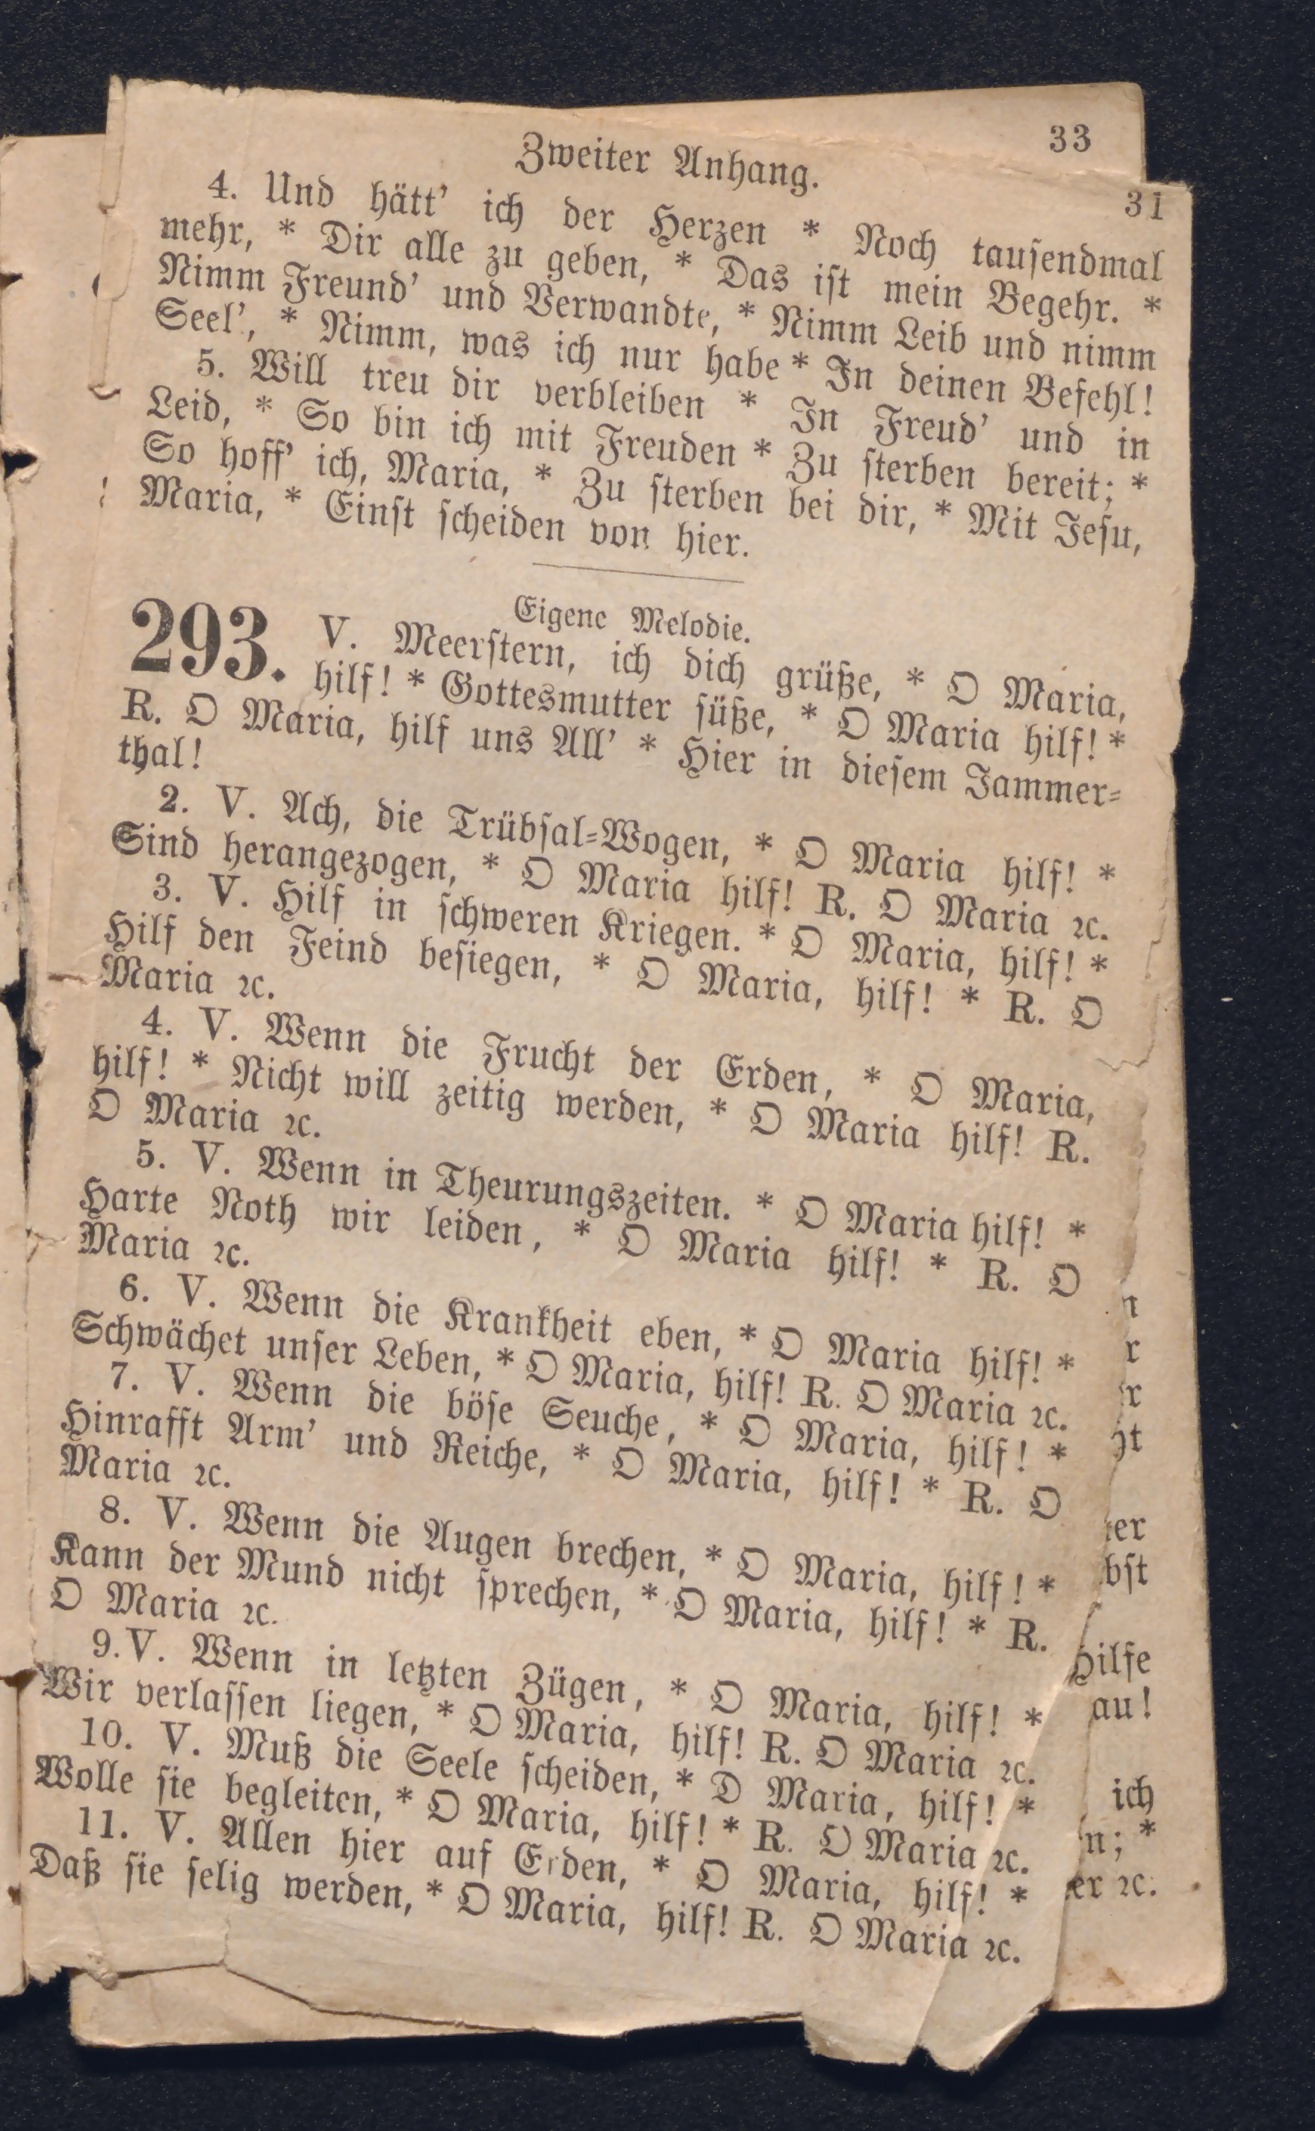 33
Zweiter Anhang.
31
4. Und hätt' ich der Herzen * Noch tausendmal
mehr, * Dir alle zu geben, * Das ist mein Begehr. *
Nimm Freund' und Verwandte, * Nimm Leib und nimm
Seel', * Nimm, was ich nur habe * In deinen Befehl!
5. Will treu dir verbleiben * In Freud' und in
Leid, * So bin ich mit Freuden * Zu sterben bereit; *
So hoff' ich, Maria, * Zu sterben bei dir, * Mit Jesu,
Maria, * Einst scheiden von hier.
Eigene Melodie.
293. V. Meerstern, ich dich grüße, * O Maria,
hilf! * Gottesmutter süße, * O Maria hilf! *
R. O Maria, hilf uns All' * Hier in diesem Jammer-
thal!
2. V. Ach, die Trübsal-Wogen, * O Maria hilf! *
Sind herangezogen, * O Maria hilf! R. O Maria ꝛc.
3. V. Hilf in schweren Kriegen. * O Maria, hilf! *
Hilf den Feind besiegen, * O Maria, hilf! * R. O
Maria ꝛc.
4. V. Wenn die Frucht der Erden, * O Maria,
hilf! * Nicht will zeitig werden, * O Maria hilf! R.
O Maria ꝛc.
5. V. Wenn in Theurungszeiten. * O Maria hilf! *
Harte Noth wir leiden, * O Maria hilf! * R. O
Maria ꝛc.
6. V. Wenn die Krankheit eben, * O Maria hilf! *
Schwächet unser Leben, * O Maria, hilf! R. O Maria ꝛc.
7. V. Wenn die böse Seuche, * O Maria, hilf! *
Hinrafft Arm' und Reiche, * O Maria, hilf! * R. O
Maria ꝛc.
8. V. Wenn die Augen brechen, * O Maria, hilf! *
Kann der Mund nicht sprechen, * O Maria, hilf! * R.
O Maria ꝛc.
9. V. Wenn in letzten Zügen, * O Maria, hilf! *
Wir verlassen liegen, * O Maria, hilf! R. O Maria ꝛc.
10. V. Muß die Seele scheiden, * O Maria, hilf! *
Wolle sie begleiten, * O Maria, hilf! * R. O Maria ꝛc.
11. V. Allen hier auf Erden, * O Maria, hilf! *
Daß sie selig werden, * O Maria, hilf! R. O Maria ꝛc.
au!
ich
n; *
er ꝛc.